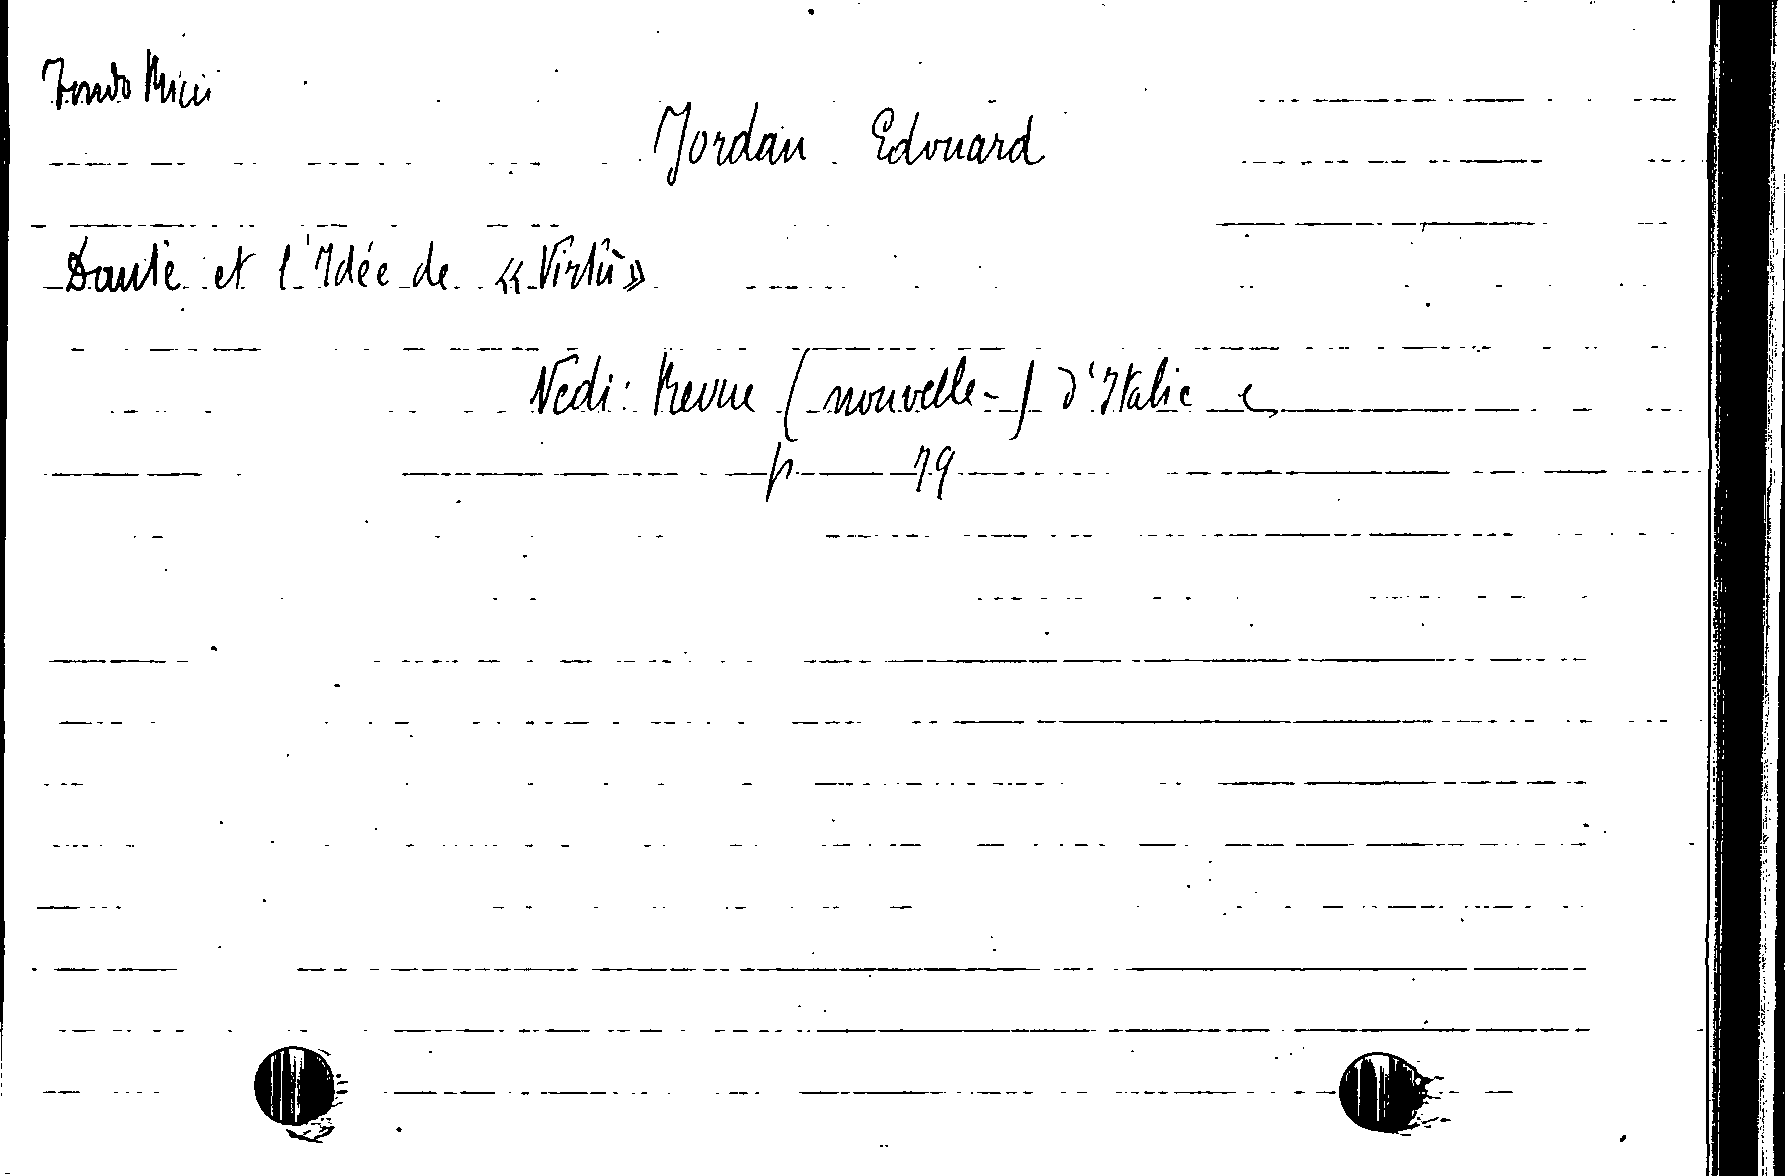 Fondo Ricci
Jordan Edouard
Dante et l'Idée de «Virtù»
Vedi: Revue (nouvelle-) d'Italie
p 79